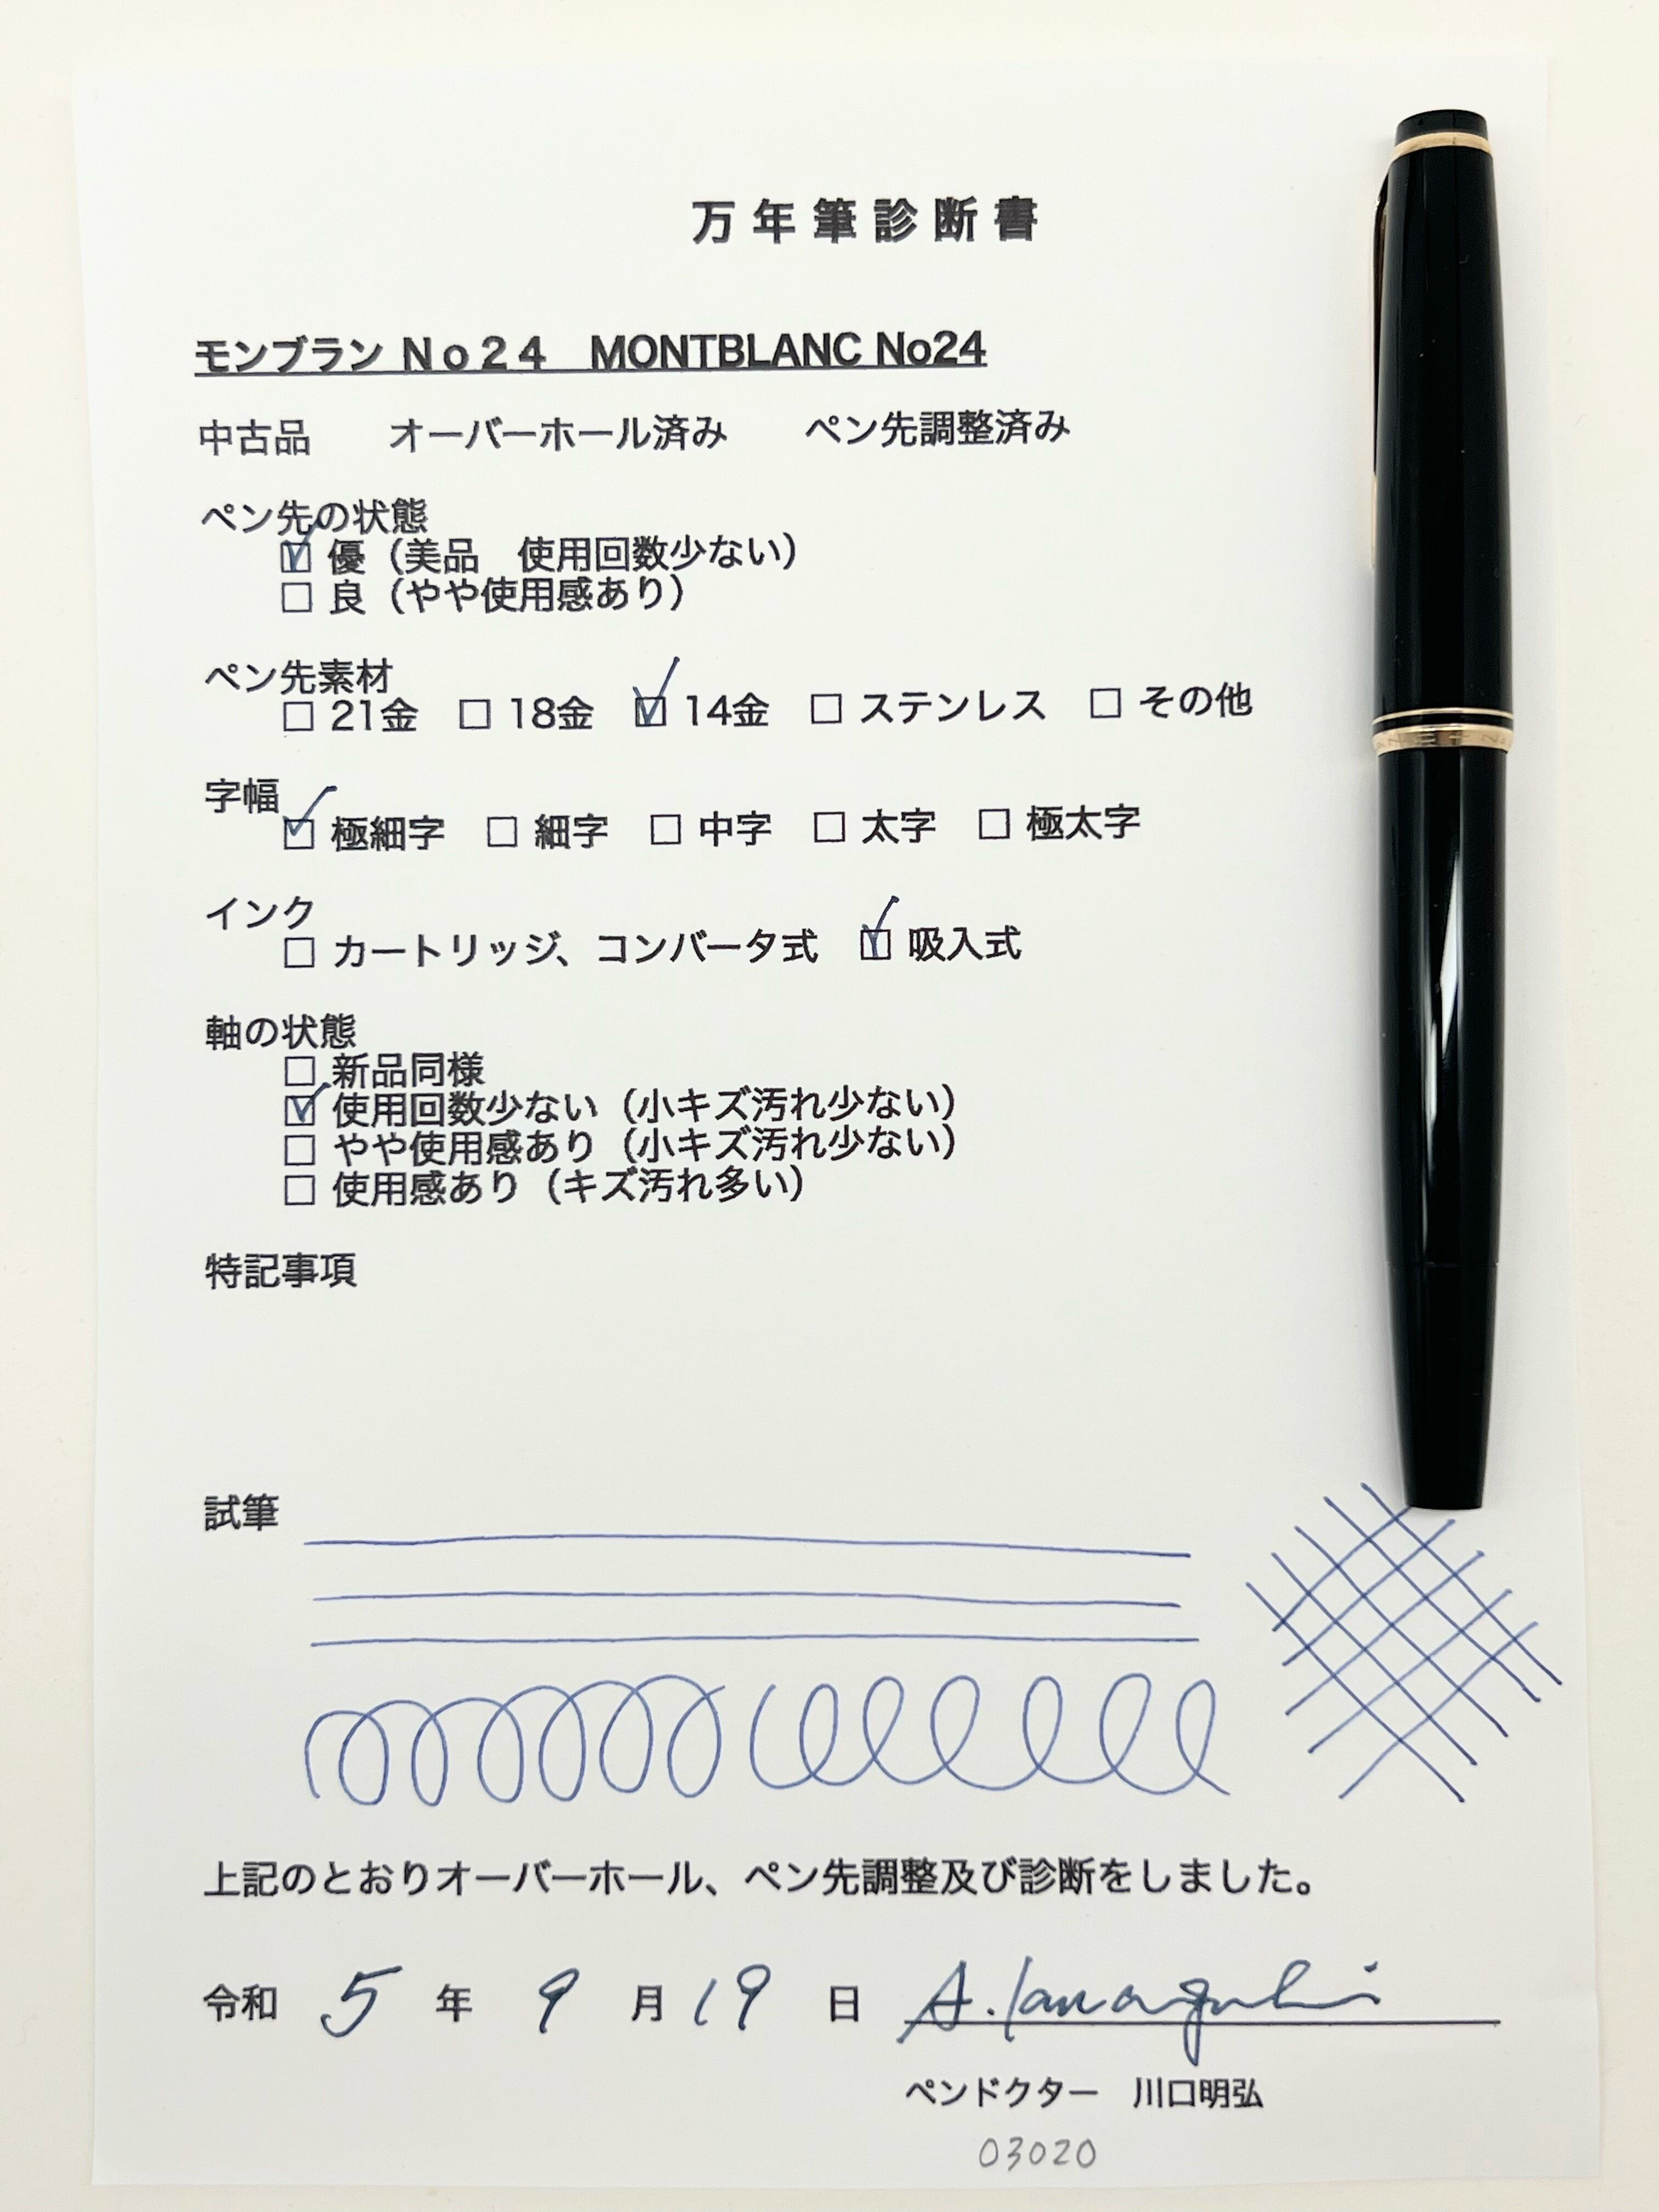 万年筆診断書
モンブラン No24 MONTBLANC No24
中古品 オーバーホール済み ペン先調整済み
ペン先の状態
☑ 優（美品 使用回数少ない）
□ 良（やや使用感あり）
ペン先素材
□ 21金 □ 18金 ☑ 14金 □ ステンレス □ その他
字幅
☑ 極細字 □ 細字 □ 中字 □ 太字 □ 極太字
インク
□ カートリッジ、コンバータ式 ☑ 吸入式
軸の状態
□ 新品同様
☑ 使用回数少ない（小キズ汚れ少ない）
□ やや使用感あり（小キズ汚れ少ない）
□ 使用感あり（キズ汚れ多い）
特記事項
試筆
上記のとおりオーバーホール、ペン先調整及び診断をしました。
令和 5 年 9 月 19 日 A. Kawaguchi
ペンドクター 川口明弘
03020